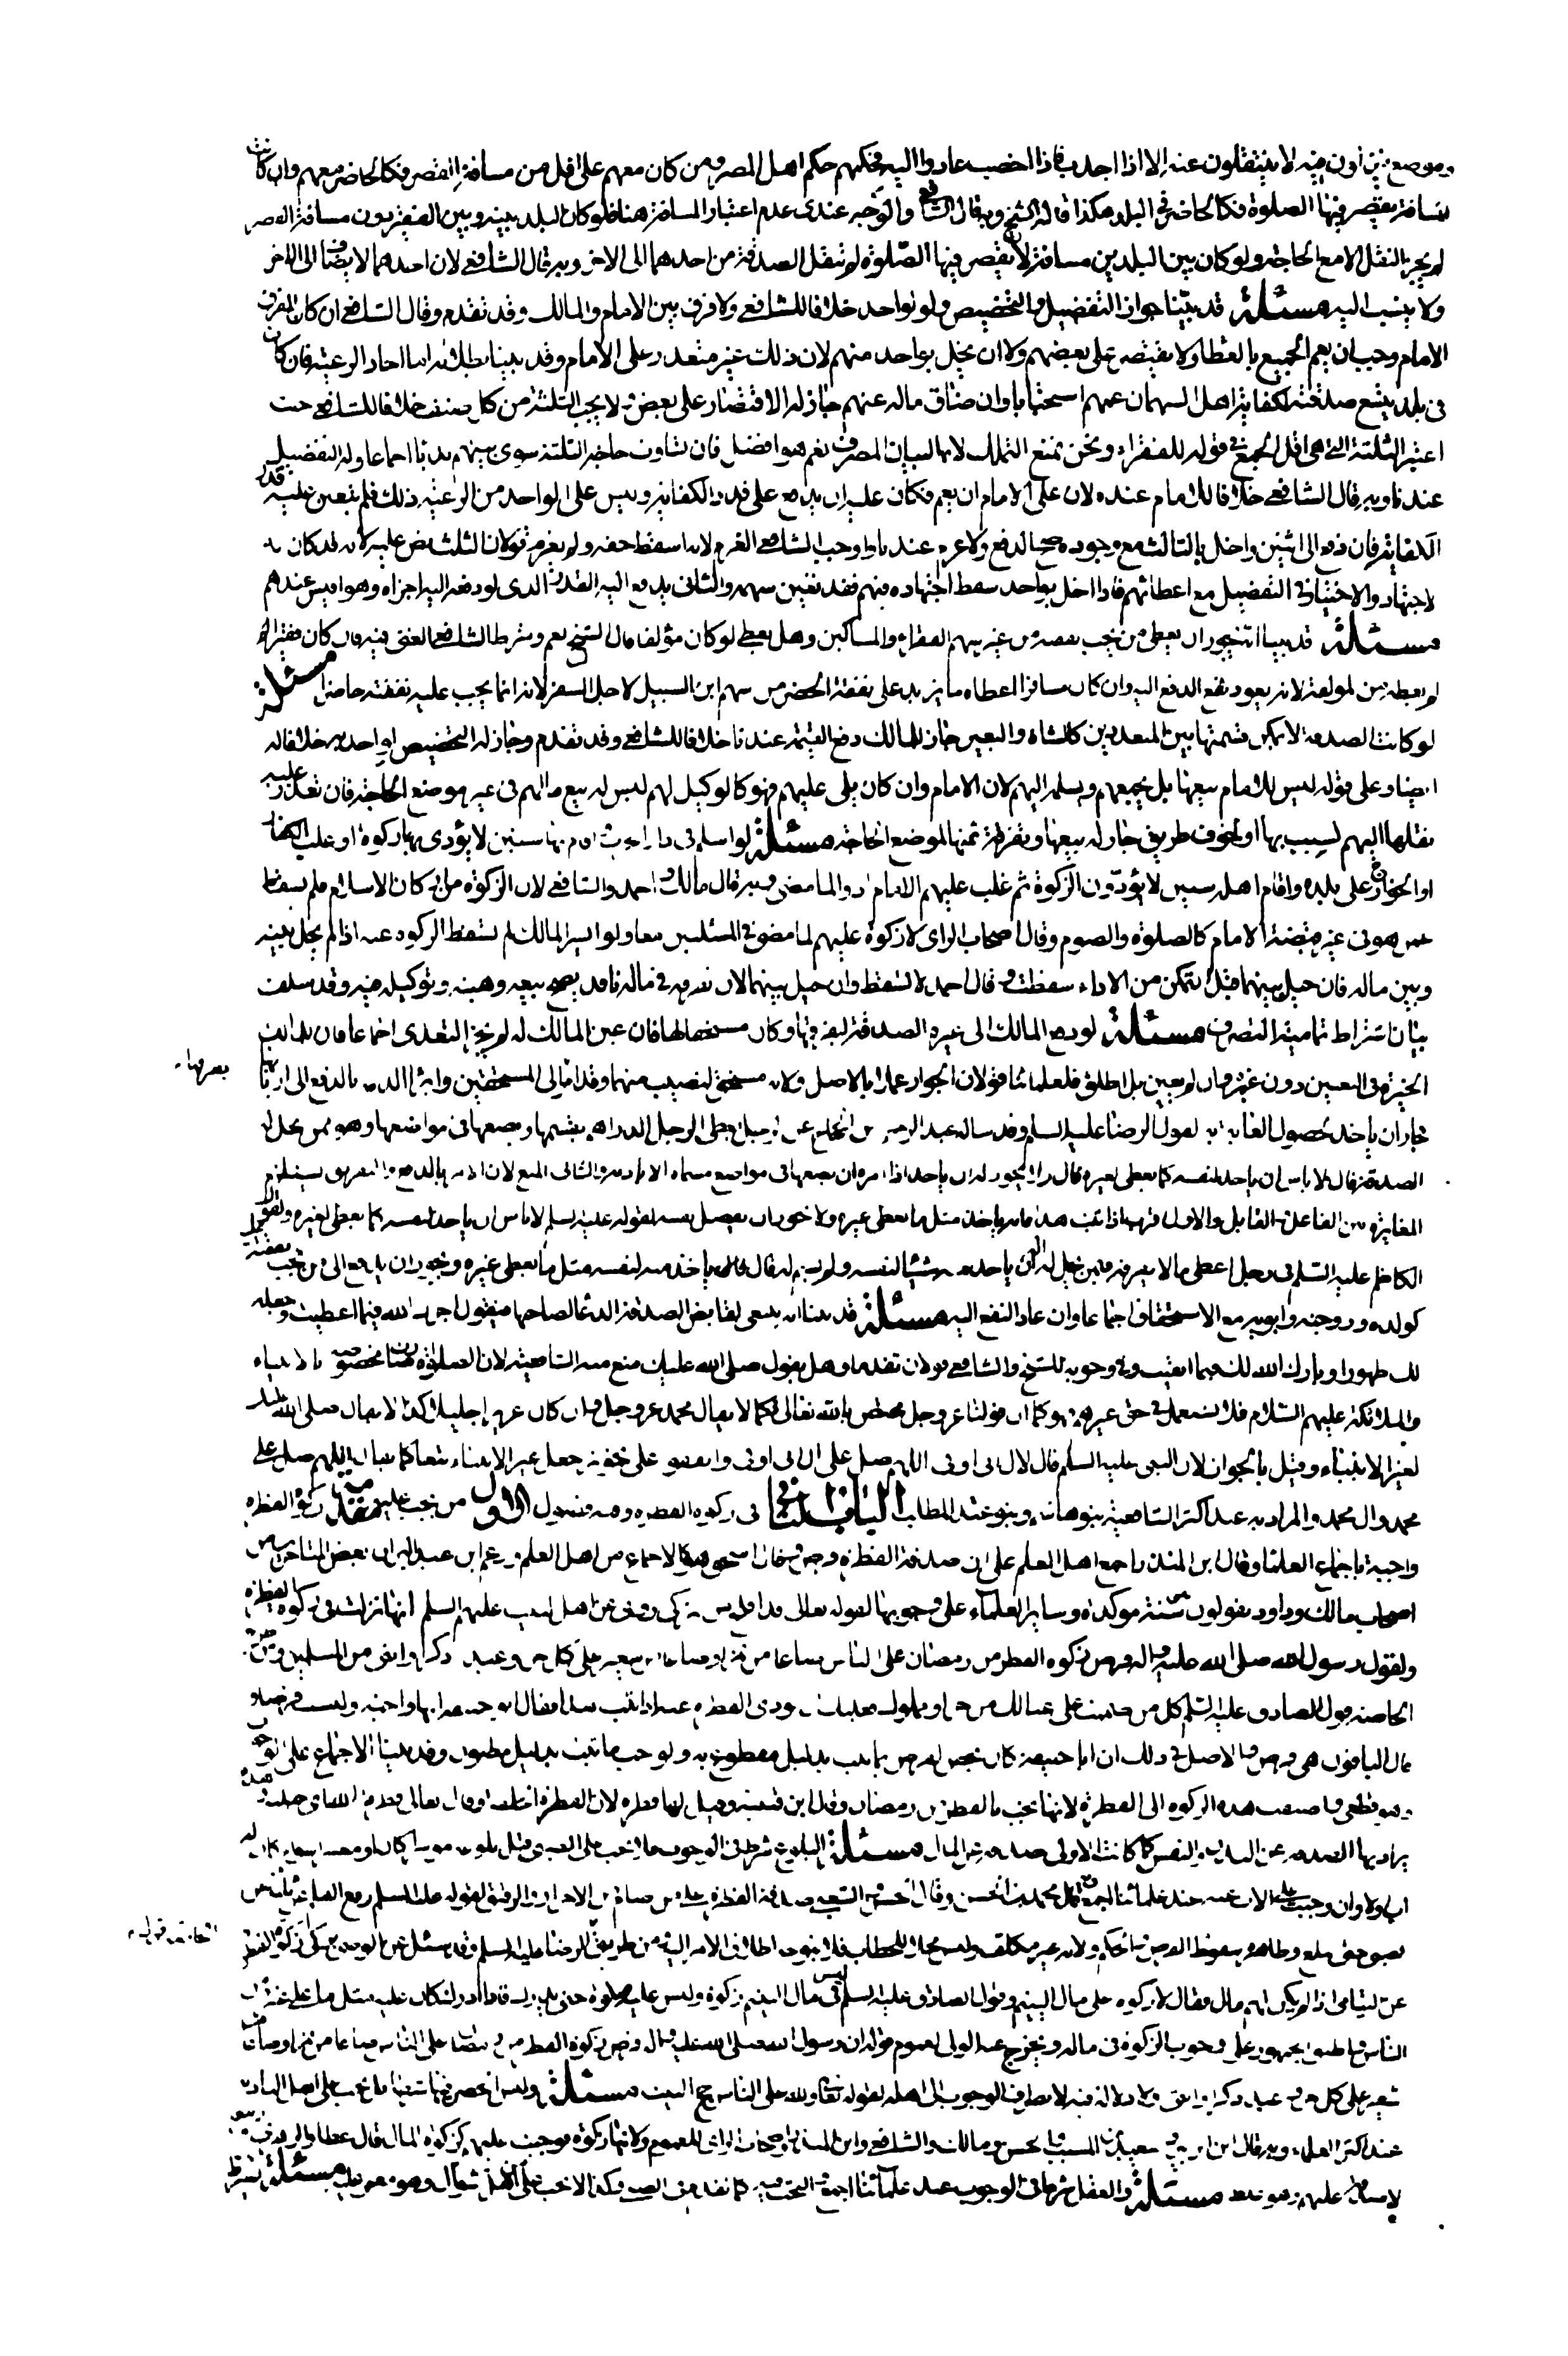 وموضع ينزلون فيه لا ينتقلون عنه إلا اذا اجدب فاذا اخصب عادوا اليه فحكمهم حكم اهل المصر ومن كان معهم على اقل من مسافة القصر فكالحاضر معهم وان كانت
مسافة يقصر فيها الصلوة فكالحاضر في البلد هكذا قاله الشيخ وبه قال الشافعي والوجه عندى عدم اعتبار المسافة هنا فلو كان البلد بينه وبين القفيزيون مسافة القصر
لم يجز النقل الا مع الحاجة ولو كان بين البلدين مسافة لا يقصر فيها الصلوة لم تنقل الصدقة من احدهما الى الاخر وبه قال الشافعي لان احدهما لا يضاف الى الاخر
ولا ينسب اليه مسئلة قد بينا جواز التفضيل والتخصيص ولو لواحد خلافا للشافعي ولا فرق بين الامام والمالك وقد تقدم وقال الشافعي ان كان المفرق
الامام وجب ان يعم الجميع بالعطا ولا يقتصر على بعضهم ولا ان يخل بواحد منهم لان ذلك غير متعذر على الامام وقد بينا بطلانه اما احاد الرعية فان كان
في بلد يتسع صدقته لكفاية اهل السهمان عمهم استحبابا وان ضاق ماله عنهم جاز له الاقتصار على بعض ولا يجب الثلثة من كل صنف خلافا للشافعي حيث
اعتبر الثلثة التي هي اقل الجمع في قوله للفقراء ونحن نمنع التملك لانها لبيان المصرف نعم هو افضل فان تساوت حاجة الثلثة سوى بينهم ندبا اجماعا وله التفضيل
عندنا وبه قال الشافعي خلافا للامام عنده لان على الامام ان يعم فكان عليه ان يدفع على قدر الكفاية وليس على الواحد من الرعية ذلك فلم يتعين عليه قدر
الكفاية فان دفع الى اثنين واخل بالثالث مع وجوده صح الدفع ولا غرم عندنا واوجب الشافعي الغرم لانه اسقط حقه ولم يغرم قولان الثلث
لاجتهاد والاختيار في التفضيل مع اعطائهم فاذا اخل بواحد سقط اجتهاده فيهم فقد تعين سهمه والثاني يدفع اليه القدر الذى لو دفعه اليه اجزاه وهو اقيس عندهم
مسئلة قد بينا انه يجوز ان يعطى من تجب نفقته من غير سهم الفقراء والمساكين وهل يعطى لو كان مؤلفا قال الشيخ نعم وشرط الشافعي الغنى فيه فان كان فقيرا
لم يعطه من المولفة لانه يعود نفع الدفع اليه وان كان مسافرا اعطاه ما يزيد على نفقة الحضر من سهم ابن السبيل لاجل السفر لانه انما يجب عليه نفقته حاضرا مسئلة
لو كانت الصدقة لا يمكن قسمتها بين المتعددين كالشاة والبعير جاز للمالك دفع القيمة عندنا خلافا للشافعي وقد تقدم وجاز له التخصيص لواحد بها خلافا له
ايضا وعلى قوله ليس للامام بيعها بل يجمعهم ويسلمه اليهم لان الامام وان كان يلى عليهم فهو كالوكيل لهم ليس له بيع مالهم في غير موضع الحاجة فان تعذر عليه
نقلها اليهم لسبب بها او لخوف طريق جاز له بيعها وتفرقة ثمنها لموضع الحاجة مسئلة لو اسلم في دار الحرب واقام بها سنين لا يؤدى بها زكوة او غلب الكفار
او الخوارج على بلدة واقام اهله سنين لا يؤدون الزكوة ثم غلب عليهم الامام ادوا لما مضى وبه قال مالك و احمد والشافعي لان الزكوة من اركان الاسلام فلم يسقط
عمن هو في غير قبضة الامام كالصلوة والصوم وقال اصحاب الراى لا زكوة عليهم لما مضى في المسئلتين معا ولو اسر المالك لم تسقط الزكوة عنه اذا لم يحل بينه
وبين ماله فان حيل بينهما قبل التمكن من الاداء سقطت وقال احمد لا تسقط وان حيل بينهما لان تصرفه في ماله نافذ يصح بيعه وهبته وتوكيله فيه وقد سلف
بيان اشتراط تمامية التصرف مسئلة لو دفع المالك الى غيره الصدقة ليفرقها وكان مستحقا لها فان عين المالك له لم يجز التعدى اجماعا فان للمالك
الخيرة في التعيين دون غيره وان لم يعين بل اطلق فلعلمائنا قولان الجواز عملا بالاصل ولانه مستحق لنصيب منها وقد اتا الى المستحقين وابرا الذمة بالدفع الى اربابها
فجاز ان ياخذ لحصول الغاية به لقول الرضا عليه السلم وقد ساله عبد الرحمن بن الحجاج عن الرجل يعطى الرجل الدراهم يقسمها ويضعها في مواضعها وهو ممن يحل له
الصدقة قال لا باس ان ياخذ لنفسه كما يعطى لغيره قال ولا يجوز له ان ياخذ اذا امره ان يضعها في مواضع مسماة الا باذنه والثاني المنع لان الامر بالدفع والتفريق يستلزم
المغايرة بين الفاعل والقابل والاول اقرب اذا ثبت هذا فانه ياخذ مثل ما يعطى غيره ولا يجوز ان يفضل نفسه لقوله عليه السلم لا باس ان ياخذ لنفسه كما يعطى لغيره ولقول
الكاظم عليه السلم في رجل اعطى مالا يفرقه فيمن يحل له ان ياخذ منه شيئا لنفسه ولم يسم له قال ياخذ منه لنفسه مثل ما يعطى غيره ويجوز ان يدفع الى من تجب نفقته
كولده وزوجته وابويه مع الاستحقاق اجماعا وان عاد النفع اليه مسئلة قد بينا انه ينبغى لقابض الصدقة الدعا لصاحبها فيقول اجرك الله فيما اعطيت وجعله
لك طهورا وبارك الله لك فيما ابقيت وفي وجوبه للشيخ والشافعي قولان تقدما وهل يقول صلى الله عليك منع منه الشافعية لان الصلوة مخصوصة بالانبياء
والملائكة عليهم السلام فلا تستعمل في حق غيرهم وكما ان قولنا عز وجل مختص بالله تعالى فكما لا يقال محمد عز وجل وان كان عزيزا جليلا كذا لا يقال صلى الله عليه
لغير الانبياء وقيل بالجواز لان النبي عليه السلم قال لال ابى اوفى اللهم صل على ال ابى اوفى واتفقوا على جعل غير الانبياء تبعا كما يقال اللهم صل على
محمد وال محمد والمراد به عند اكثر الشافعية بنو هاشم وبنو عبد المطلب الباب الثاني في زكوة الفطرة وفيه فصول الاول من تجب عليه مقدمة زكوة الفطرة
واجبة باجماع العلما وقال ابن المنذر اجمع اهل العلم على ان صدقة الفطرة فرض وقال اسحق هو كالاجماع من اهل العلم وزعم ابن عبد البر ان بعض المتاخرين من
اصحاب مالك وداود يقولون هي سنة موكدة وساير العلماء على وجوبها لقوله تعالى قد افلح من تزكى روى عن اهل البيت عليهم السلم انها نزلت في زكوة الفطرة
ولقول رسول الله صلى الله عليه واله فرض زكوة الفطر من رمضان على الناس صاعا من تمر او صاعا من شعير على كل حر وعبد ذكر او انثى من المسلمين ومن طريق
الخاصة قول الصادق عليه السلم كل من ضممت الى عيالك من حر او مملوك فعليك ان تؤدى الفطرة عنه اذا ثبت هذا فقال ابو حنيفة انها واجبة وليست فرضا و
قال الباقون هي فرض والاصل في ذلك ان ابا حنيفة كان يخص الفرض بما ثبت بدليل مقطوع به والوجوب ما ثبت بدليل مظنون وقد بينا الاجماع على الوجوب
وهو قطعي واضيفت هذه الزكوة الى الفطرة لانها تجب بالفطر من رمضان وقال ابن قتيبة وقيل لها فطرة لان الفطرة الخلقة قال تعالى فطرة الله اى خلقته وهذه
يراد بها الصدقة عن البدن والنفس كما كانت الاولى صدقة عن المال مسئلة البلوغ شرط في الوجوب فلا يجب على الصبي قبل بلوغه موسرا كان او معسرا سواء كان له
اب او لا وان وجبت على الاب عنه عند علمائنا اجمع وبه قال محمد بن الحسن وقال الحسن والشعبي صدقة الفطرة على من صام من الاحرار والرقيق لقوله عليه السلم رفع القلم عن ثلثة عن
الصبي حتى يبلغ وظاهره سقوط الفرض والحكم ولانه غير مكلف وليس محلا للخطاب فلا يتوجه اطلاق الامر اليه من طريق الرضا عليه السلم وقد سئل عن الوصي يزكى زكوة الفطرة
عن اليتامى اذا لم يكن لهم مال فقال لا زكوة على مال اليتيم وقول الصادق عليه السلم ليس في مال اليتيم زكوة وليس عليه صلوة حتى يدرك فاذا ادرك كان عليه مثل ما على غيره من
الناس واطبق الجمهور على وجوب الزكوة في ماله ويخرج عنه الولى لعموم قوله ان رسول الله صلى الله عليه واله فرض زكوة الفطر من رمضان على الناس صاعا من تمر او صاعا من
شعير على كل حر وعبد ذكر او انثى ولا دلالة فيه لانصراف الوجوب الى اهله لقوله تعالى ولله على الناس حج البيت مسئلة وليس الحضر فيها شرطا بل تجب على اهل البادية
عند اكثر العلماء وبه قال ابن الزبير و سعيد بن المسيب والحسن ومالك والشافعي وابن المنذر واصحاب الراى للعموم ولانها زكوة فوجبت عليهم كزكوة المال وقال عطا والزهرى وربيعة
لا صدقة عليهم وهو غلط مسئلة والعقل شرط في الوجوب عند علمائنا اجمع فلا تجب كما تقدم في الصبي وكذا لا تجب على اهل شوال وهو مغمى عليه مسئلة يشترط